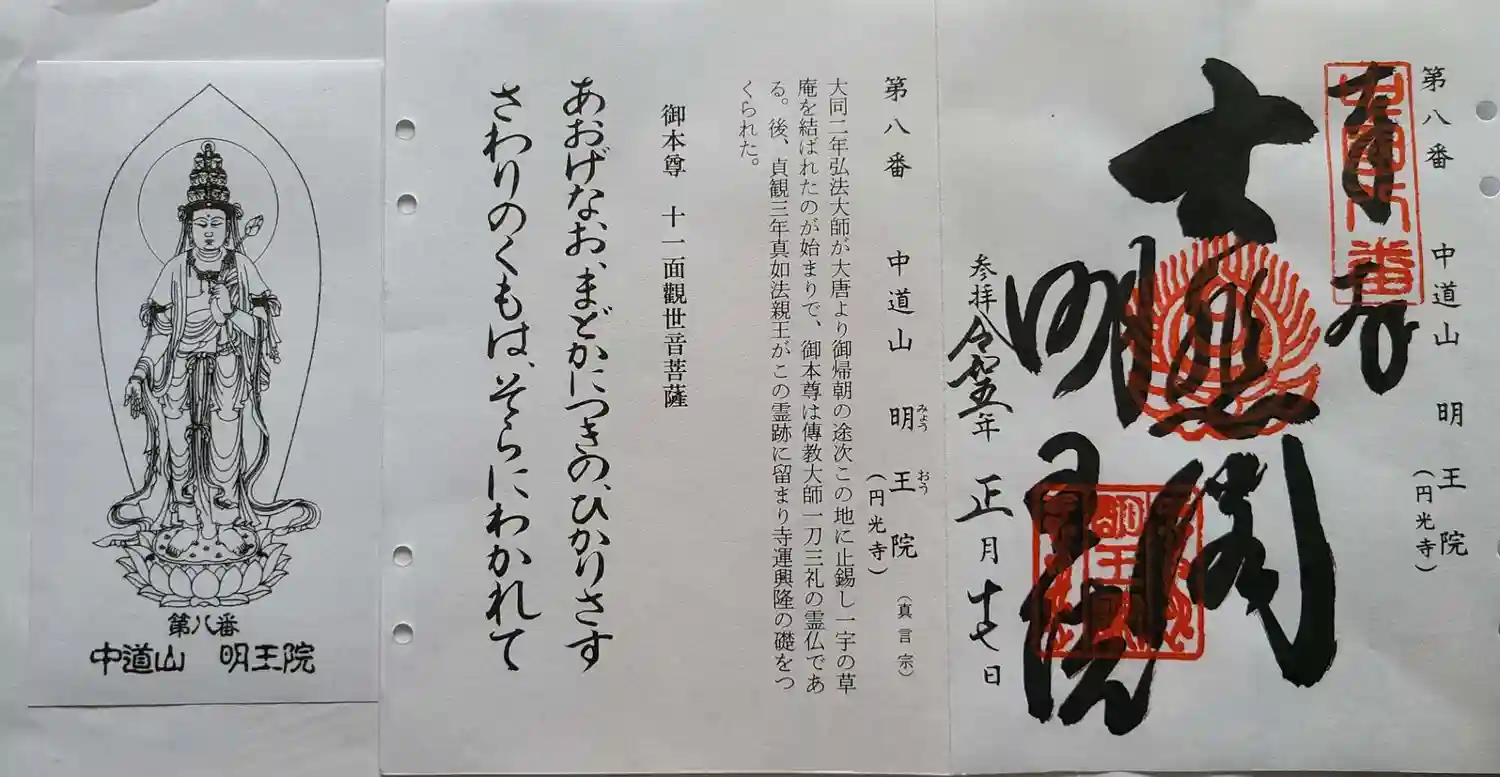 第八番 中道山 明王院
(円光寺)
大悲閣
明王院
参拝 令和五年 正月 十七日
第八番 中道山 明王院 (真言宗)
みょう おう
(円光寺)
大同二年弘法大師が大唐より御帰朝の途次この地に止錫し一宇の草
庵を結ばれたのが始まりで、御本尊は傳教大師一刀三礼の霊仏であ
る。後、貞観三年真如法親王がこの霊跡に留まり寺運興隆の礎をつ
くられた。
御本尊 十一面觀世音菩薩
あおげなお、まどかにつきの、ひかりさす
さわりのくもは、そらにわかれて
第八番
中道山 明王院